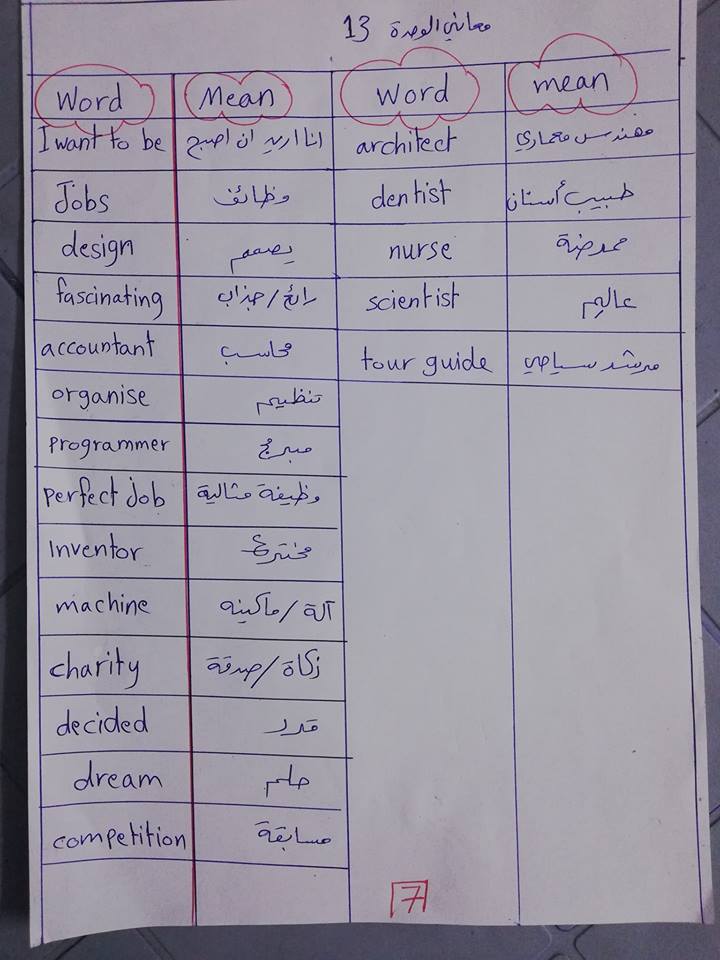 معاني الوحدة 13
Word Mean Word mean
I want to be انا اريد ان اصبح architect مهندس معماري
Jobs وظائف dentist طبيب أسنان
design يصمم nurse ممرضة
fascinating رائع / جذاب scientist عاليم
accountant محاسب tour guide مرشد سياحي
organise تنظيم
programmer مبرمج
perfect job وظيفة مثالية
inventor مخترع
machine آلة / ماكينه
charity زكاة / صدقة
decided قرر
dream حلم
competition مسابقة
7